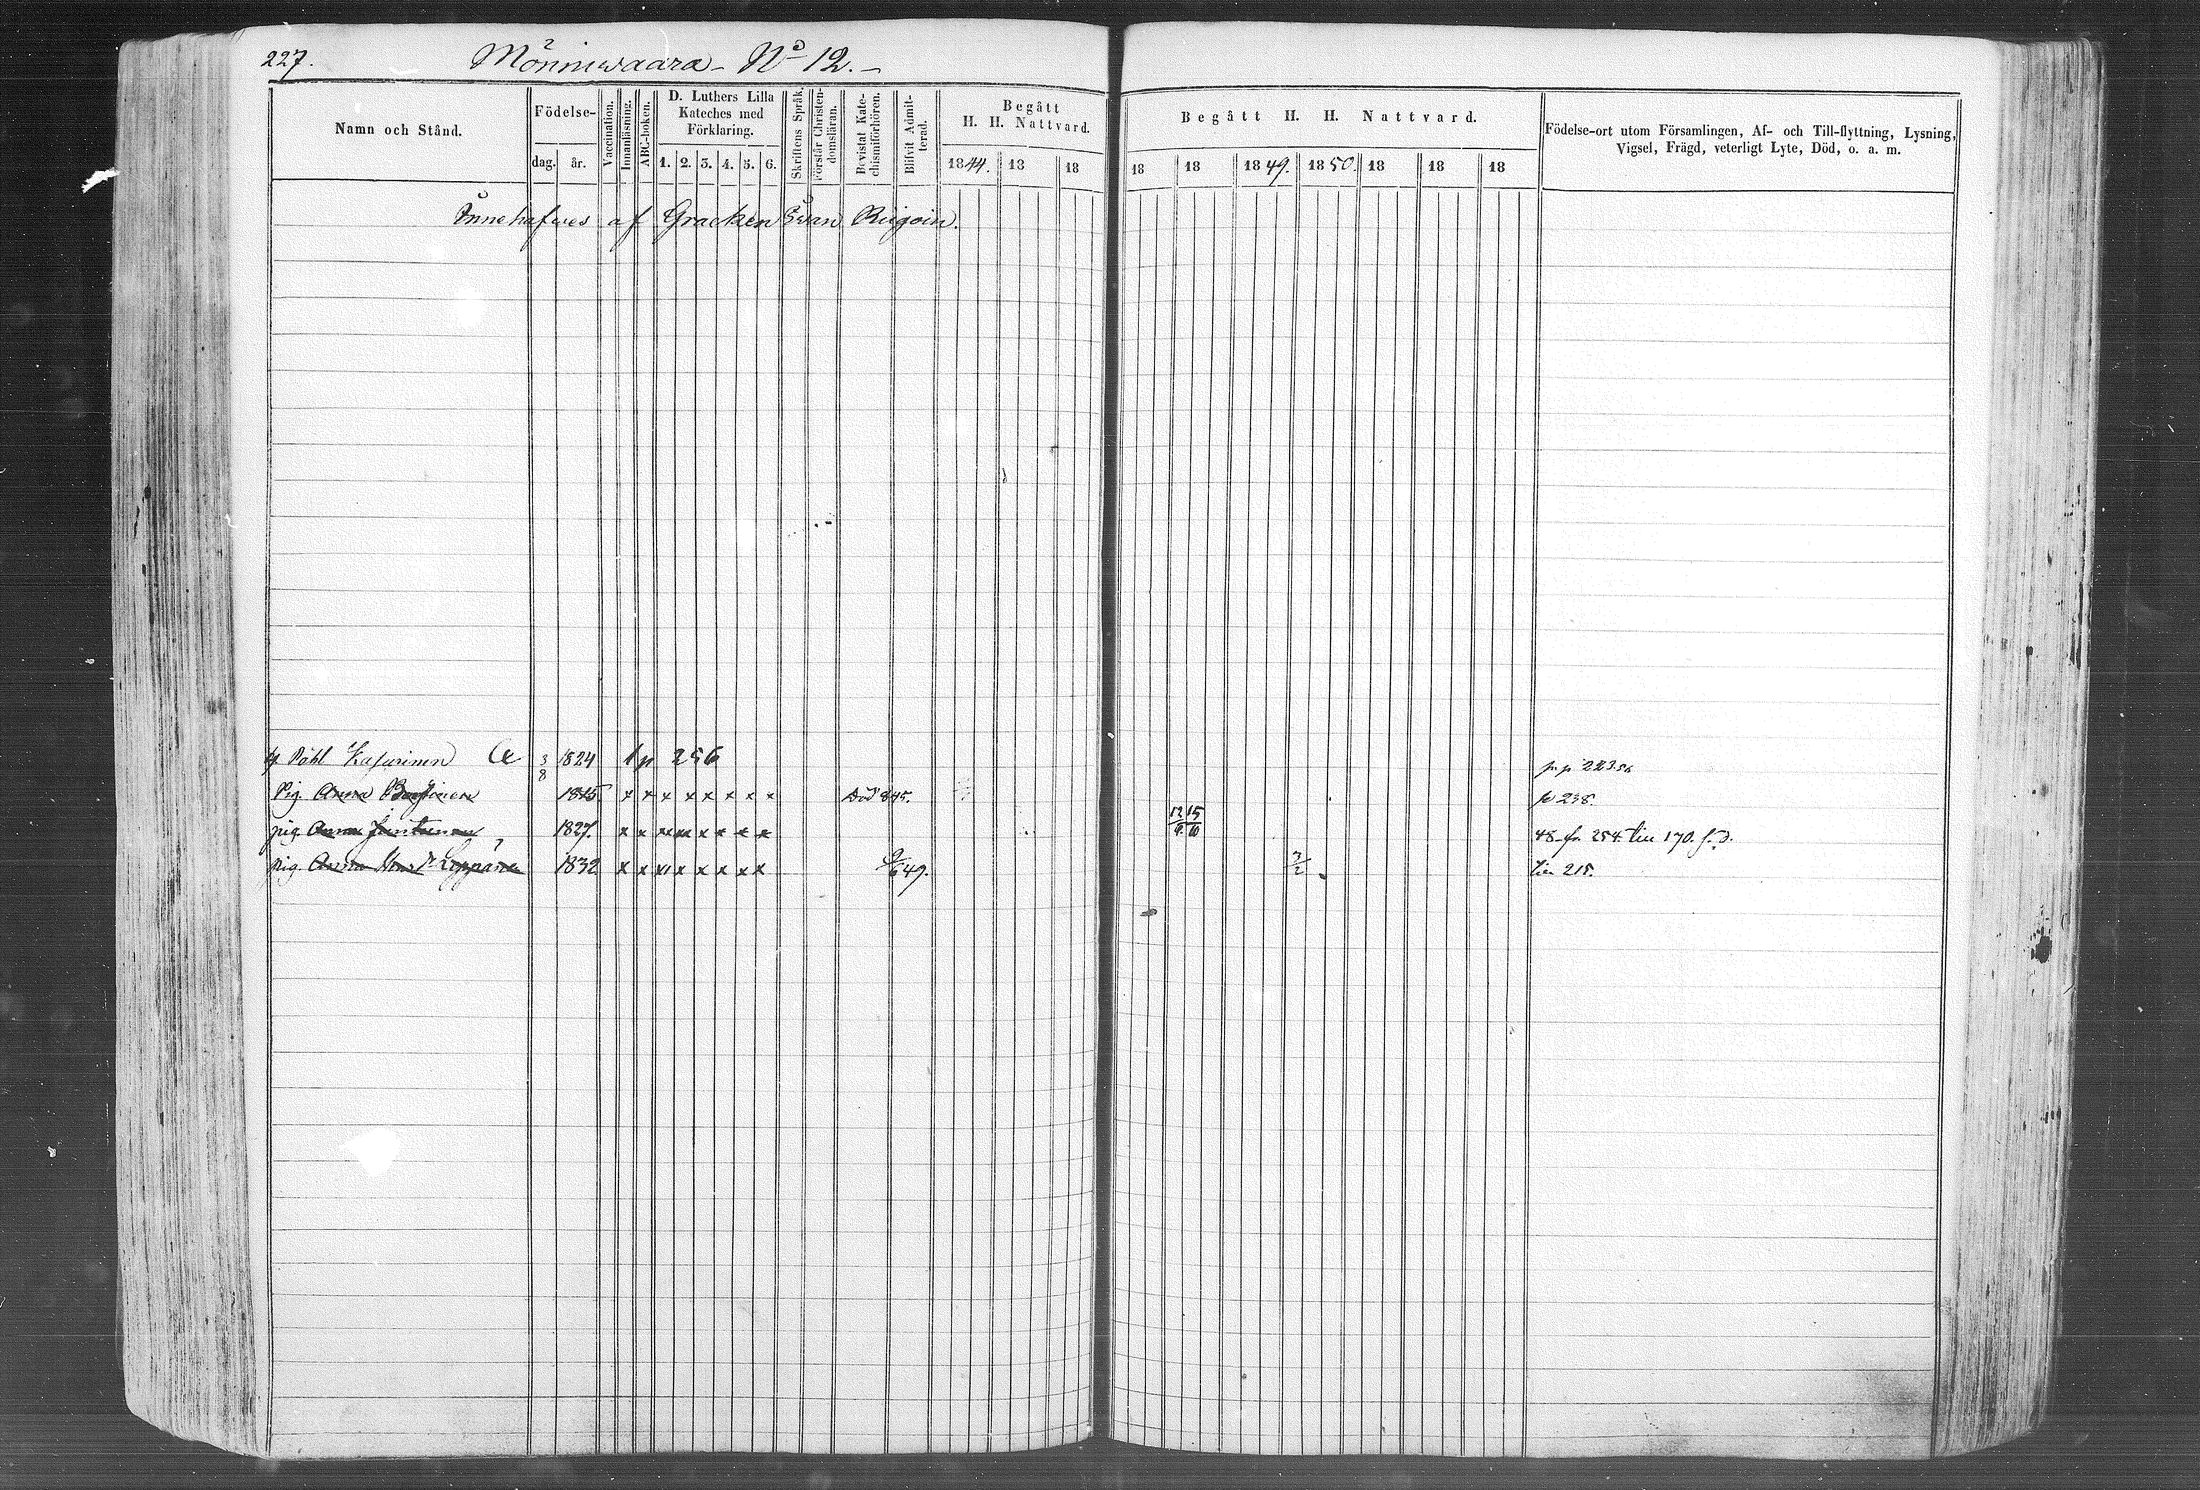 227. Mönniwaara - No 12. -
Namn och Stånd.
Födelse-
dag. år.
Vaccination.
Innanläsning.
ABC-boken.
D. Luthers Lilla
Kateches med
Förklaring.
1. 2. 3. 4. 5. 6.
Skriftens Språk.
Förstår Christen-
domsläran.
Bevistat Kate-
chismiförhören.
Blifvit Admit-
terad.
Begått
H. H. Nattvard.
1844. 18 18
Begått H. H. Nattvard.
18 18 1849. 1850. 18 18 18
Födelse-ort utom Församlingen, Af- och Till-flyttning, Lysning,
Vigsel, Frägd, veterligt Lyte, Död, o. a. m.
Innehafwes af Greeken Iwan Rügoin.
Påhl Kasurinen 3/8 1824 256
Pig. Anna 1815. x x x x x x x x Död 845. p 238.
pig. Anna 1827. x x x x x x x x 12/9 15/10 48 fr. 254. till 170.
pig. Anna Leppänen 1832 x x x x x x x x 9/6 49. 3/2 till 215.